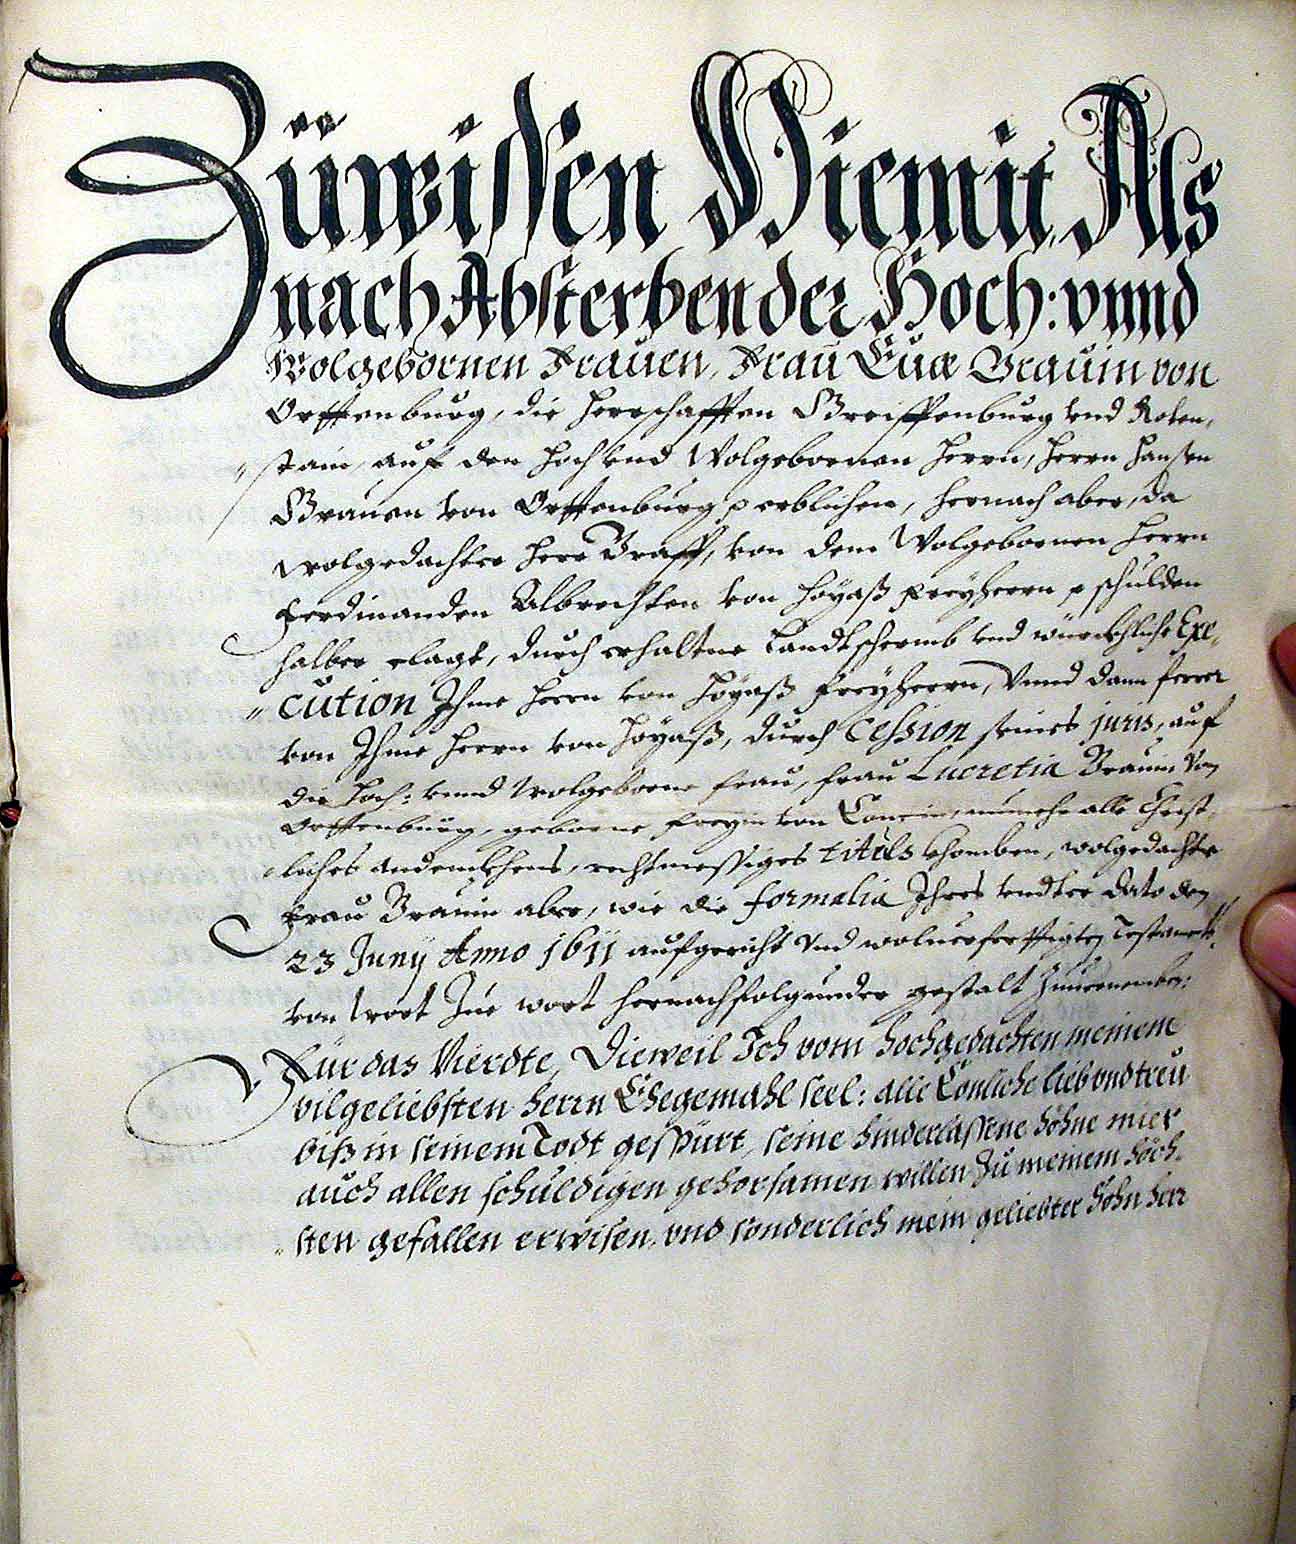 Züwissen Hiemit, Als
nach Absterben der Hoch: vnnd
Wolgebornen Frauen, Frau Euæ Grauin von
Orttenburg, die herrschafften Greiffenburg vnd Roten,
stain, auf den Hoch vnd Wolgebornen herrn, herrn hansen
Grauen von Orttenburg p erblichen, hernach aber, da
wolgedachter herr Graff, von dem Wolgebornen herrn
Ferdinanden Albrechten von Hoyaß Freyherrn p schulden
halber clagt, durch erhaltne Landtschermb vnd würckhliche Exe,
cution Ihme herrn von Hoyaß Freyherrn, Vnnd dann ferrer
von Ihme herrn von Hoyaß, durch Cession seines juris, auf
die Hoch: vnnd Wolgeborne frau, frau Lucretia Grauin von
Orttenburg, geborne Freyin von nunmehr alle Christ,
liches andenckhens, rechtmessiges tituls khomben, wolgedachte
Frau Grauin aber, wie die formalia Ihres vndter dato den
23 Juny Anno 1611 aufgericht vnd woluerferttigten Testaments,
von wort Zue wort hernachfolgunder gestalt Zuuernemben:
Für das Vierdte, Dieweil Ich vom hochgedachten meinem
vilgeliebsten herrn Ehegemahl seel: alle Eenliche lieb vnd treu
biß in seinem Todt gespürt, seine hinderlassene Söhne mier
auch allen schuldigen gehorsamen willen zu meinem höch,
sten gefallen erwisen, vnd sonderlich mein geliebter Sohn herr